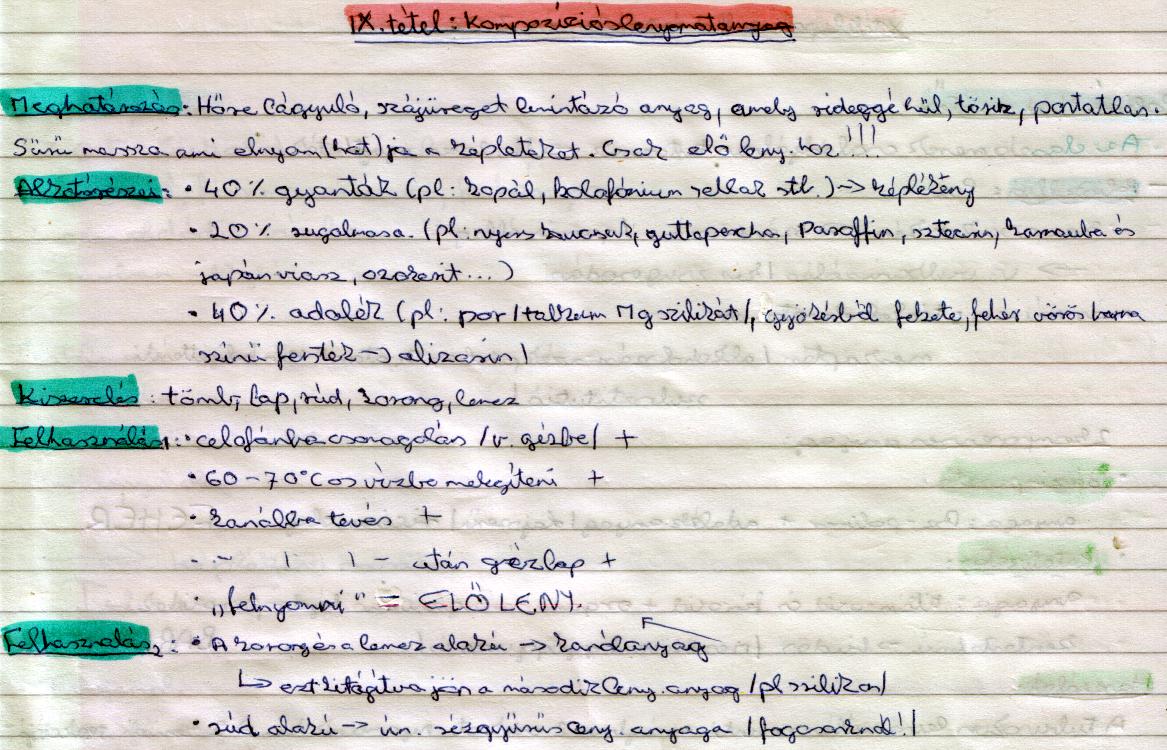 IX. tétel: Kompozíciós lenyomatanyag
Meghatározás: Hőre lágyuló, szájüreget lenintázó anyag, amely rideggé hül, törik, pontatlan.
Sűrű massza ami elnyom(hat)ja a képleteket. Csak előleny.hoz!!!
Alkotórészei: • 40% gyanták (pl: kopál, kolofónium sellak stb.) -> képlékeny
• 20% rugalmasa. (pl: nyers kaucsuk, guttapercha, Paraffin, sztearin, karnauba és
japán viasz, ozokerit...)
• 40% adalék (pl: por /talkum Mg szilikát/, gyökésből fekete, fehér vörös barna
színű festék -> alizarin /
Kiszerelés: tömb, lap, rúd, korong, lemez
Felhasználás1: • celofánba csomagolás /v. gézbe/ +
• 60-70°C os vízbe melegíteni +
• kanálba tevés +
• - " - után gézlap +
• „felnyomni" = ELŐLENY.
Felhasználás2: • A korong és a lemez alakú -> kanálanyag
↳ ezt kitágítva jön a második leny. anyag /pl szilikon/
• rúd alakú -> ún. rézgyűrűs leny. anyaga /fogcsarknál!/